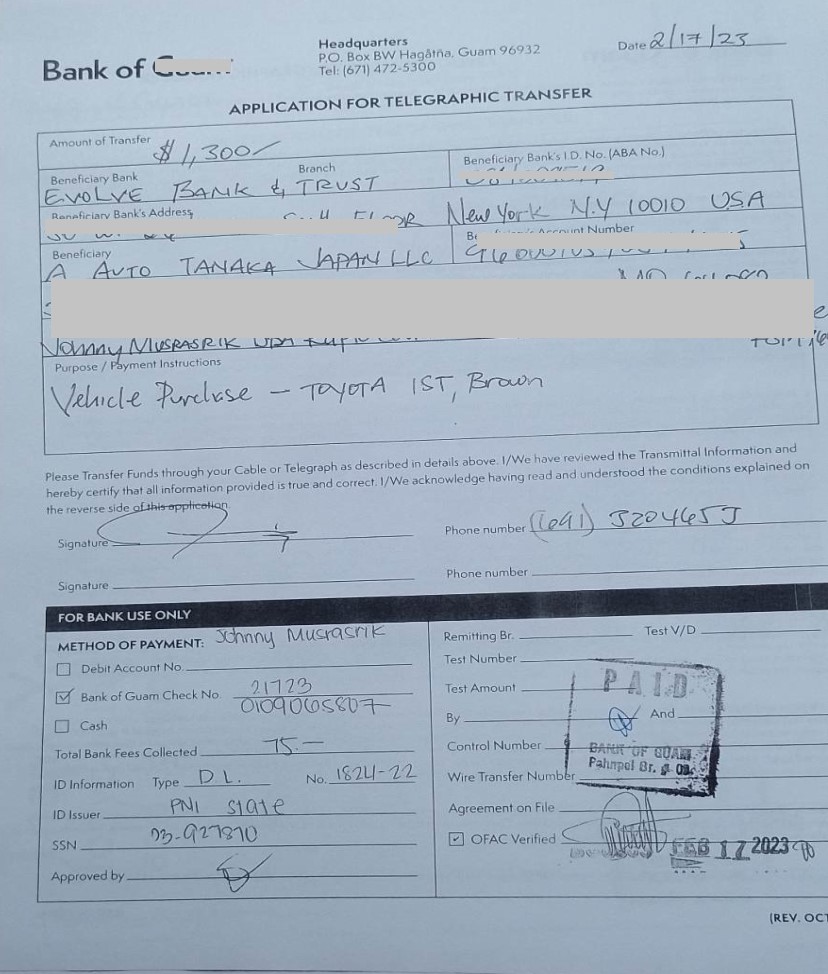 Bank of
Headquarters
P.O. Box BW Hagåtña, Guam 96932
Tel: (671) 472-5300
Date 2/17/23
APPLICATION FOR TELEGRAPHIC TRANSFER
Amount of Transfer $1,300/
Beneficiary Bank Branch
EVOLVE BANK & TRUST
Beneficiary Bank's I.D. No. (ABA No.)
Beneficiary Bank's Address
New York N.Y 10010 USA
Account Number
Beneficiary
A AUTO TANAKA JAPAN LLC
Johnny MUSRASRIK
Purpose / Payment Instructions
Vehicle Purchase - TOYOTA IST, Brown
Please Transfer Funds through your Cable or Telegraph as described in details above. I/We have reviewed the Transmittal Information and
hereby certify that all information provided is true and correct. I/We acknowledge having read and understood the conditions explained on
the reverse side of this application.
Signature
Phone number (691) 3204653
Signature
Phone number
FOR BANK USE ONLY
METHOD OF PAYMENT: Johnny Musrasrik
Debit Account No.
Bank of Guam Check No. 21723
0109065807
Cash
Total Bank Fees Collected 75.-
ID Information Type D L. No. 1824-22
ID Issuer PNI State
SSN 03-927870
Approved by
Remitting Br. Test V/D
Test Number
Test Amount
PAID
By And
Control Number
BANK OF GUAM
Pohnpei Br.
Wire Transfer Number
Agreement on File
OFAC Verified
FEB 17 2023
(REV. OCT